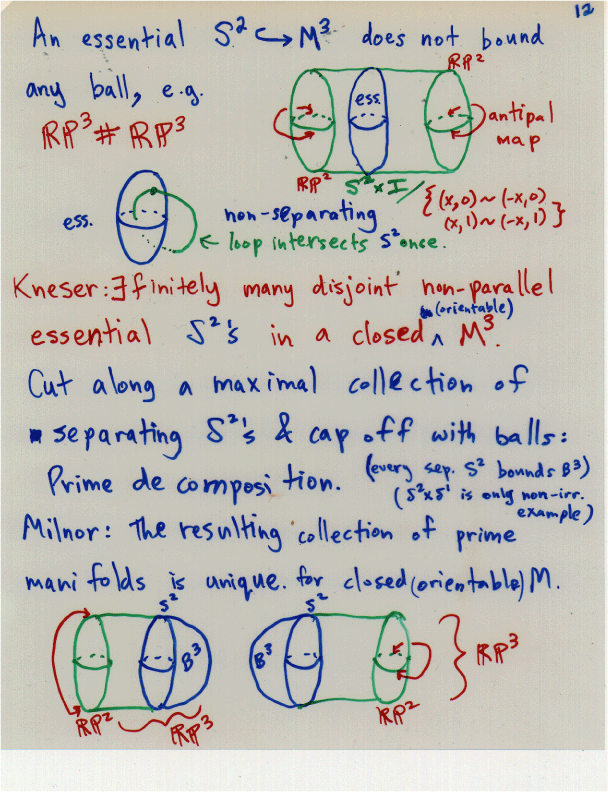 12
An essential S² ↪ M³ does not bound
any ball, e.g.
RP³ # RP³
RP²
ess.
antipal
map
RP²
S² × I / {(x,0) ~ (-x,0)
(x,1) ~ (-x,1)}
ess.
non-separating
← loop intersects S² once.
Kneser: ∃ finitely many disjoint non-parallel
(orientable)
essential S²'s in a closed ^ M³.
Cut along a maximal collection of
separating S²'s & cap off with balls:
Prime decomposition. (every sep. S² bounds B³)
(S²×S¹ is only non-irr.
example)
Milnor: The resulting collection of prime
manifolds is unique. for closed (orientable) M.
S²
S²
B³
B³
RP³
RP²
RP³
RP²